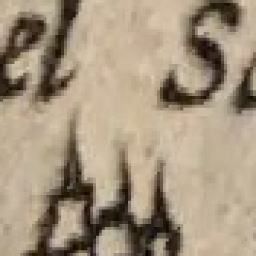 el S